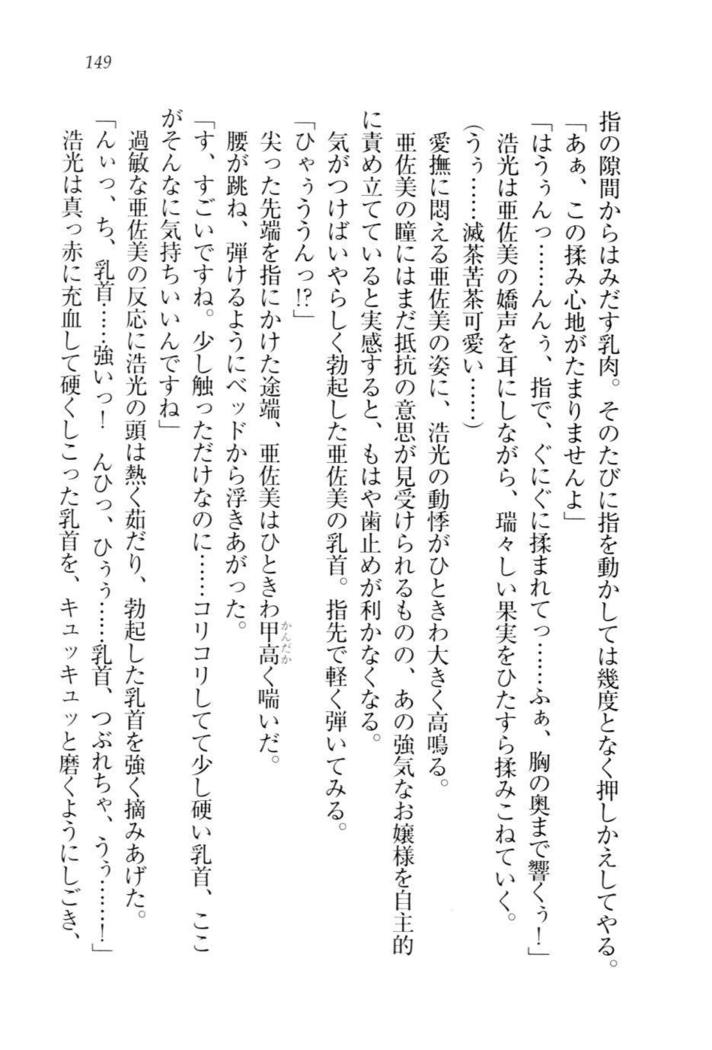 149
指の隙間からはみだす乳肉。そのたびに指を動かしては幾度となく押しかえしてやる。
「あぁ、この揉み心地がたまりませんよ」
「はうぅんっ……んんぅ、指で、ぐにぐに揉まれてっ……ふぁ、胸の奥まで響くぅ！」
浩光は亜佐美の嬌声を耳にしながら、瑞々しい果実をひたすら揉みこねていく。
(うぅ……滅茶苦茶可愛い……)
愛撫に悶える亜佐美の姿に、浩光の動悸がひときわ大きく高鳴る。
亜佐美の瞳にはまだ抵抗の意思が見受けられるものの、あの強気なお嬢様を自主的
に責め立てていると実感すると、もはや歯止めが利かなくなる。
気がつけばいやらしく勃起した亜佐美の乳首。指先で軽く弾いてみる。
「ひゃぅううんっ!?」
尖った先端を指にかけた途端、亜佐美はひときわ甲高く喘いだ。
かんだか
腰が跳ね、弾けるようにベッドから浮きあがった。
「す、すごいですね。少し触っただけなのに……コリコリしてて少し硬い乳首、ここ
がそんなに気持ちいいんですね」
過敏な亜佐美の反応に浩光の頭は熱く茹だり、勃起した乳首を強く摘みあげた。
「んぃっ、ち、乳首……強いっ！　んひっ、ひぅぅ……乳首、つぶれちゃ、うぅ……！」
浩光は真っ赤に充血して硬くしこった乳首を、キュッキュッと磨くようにしごき、